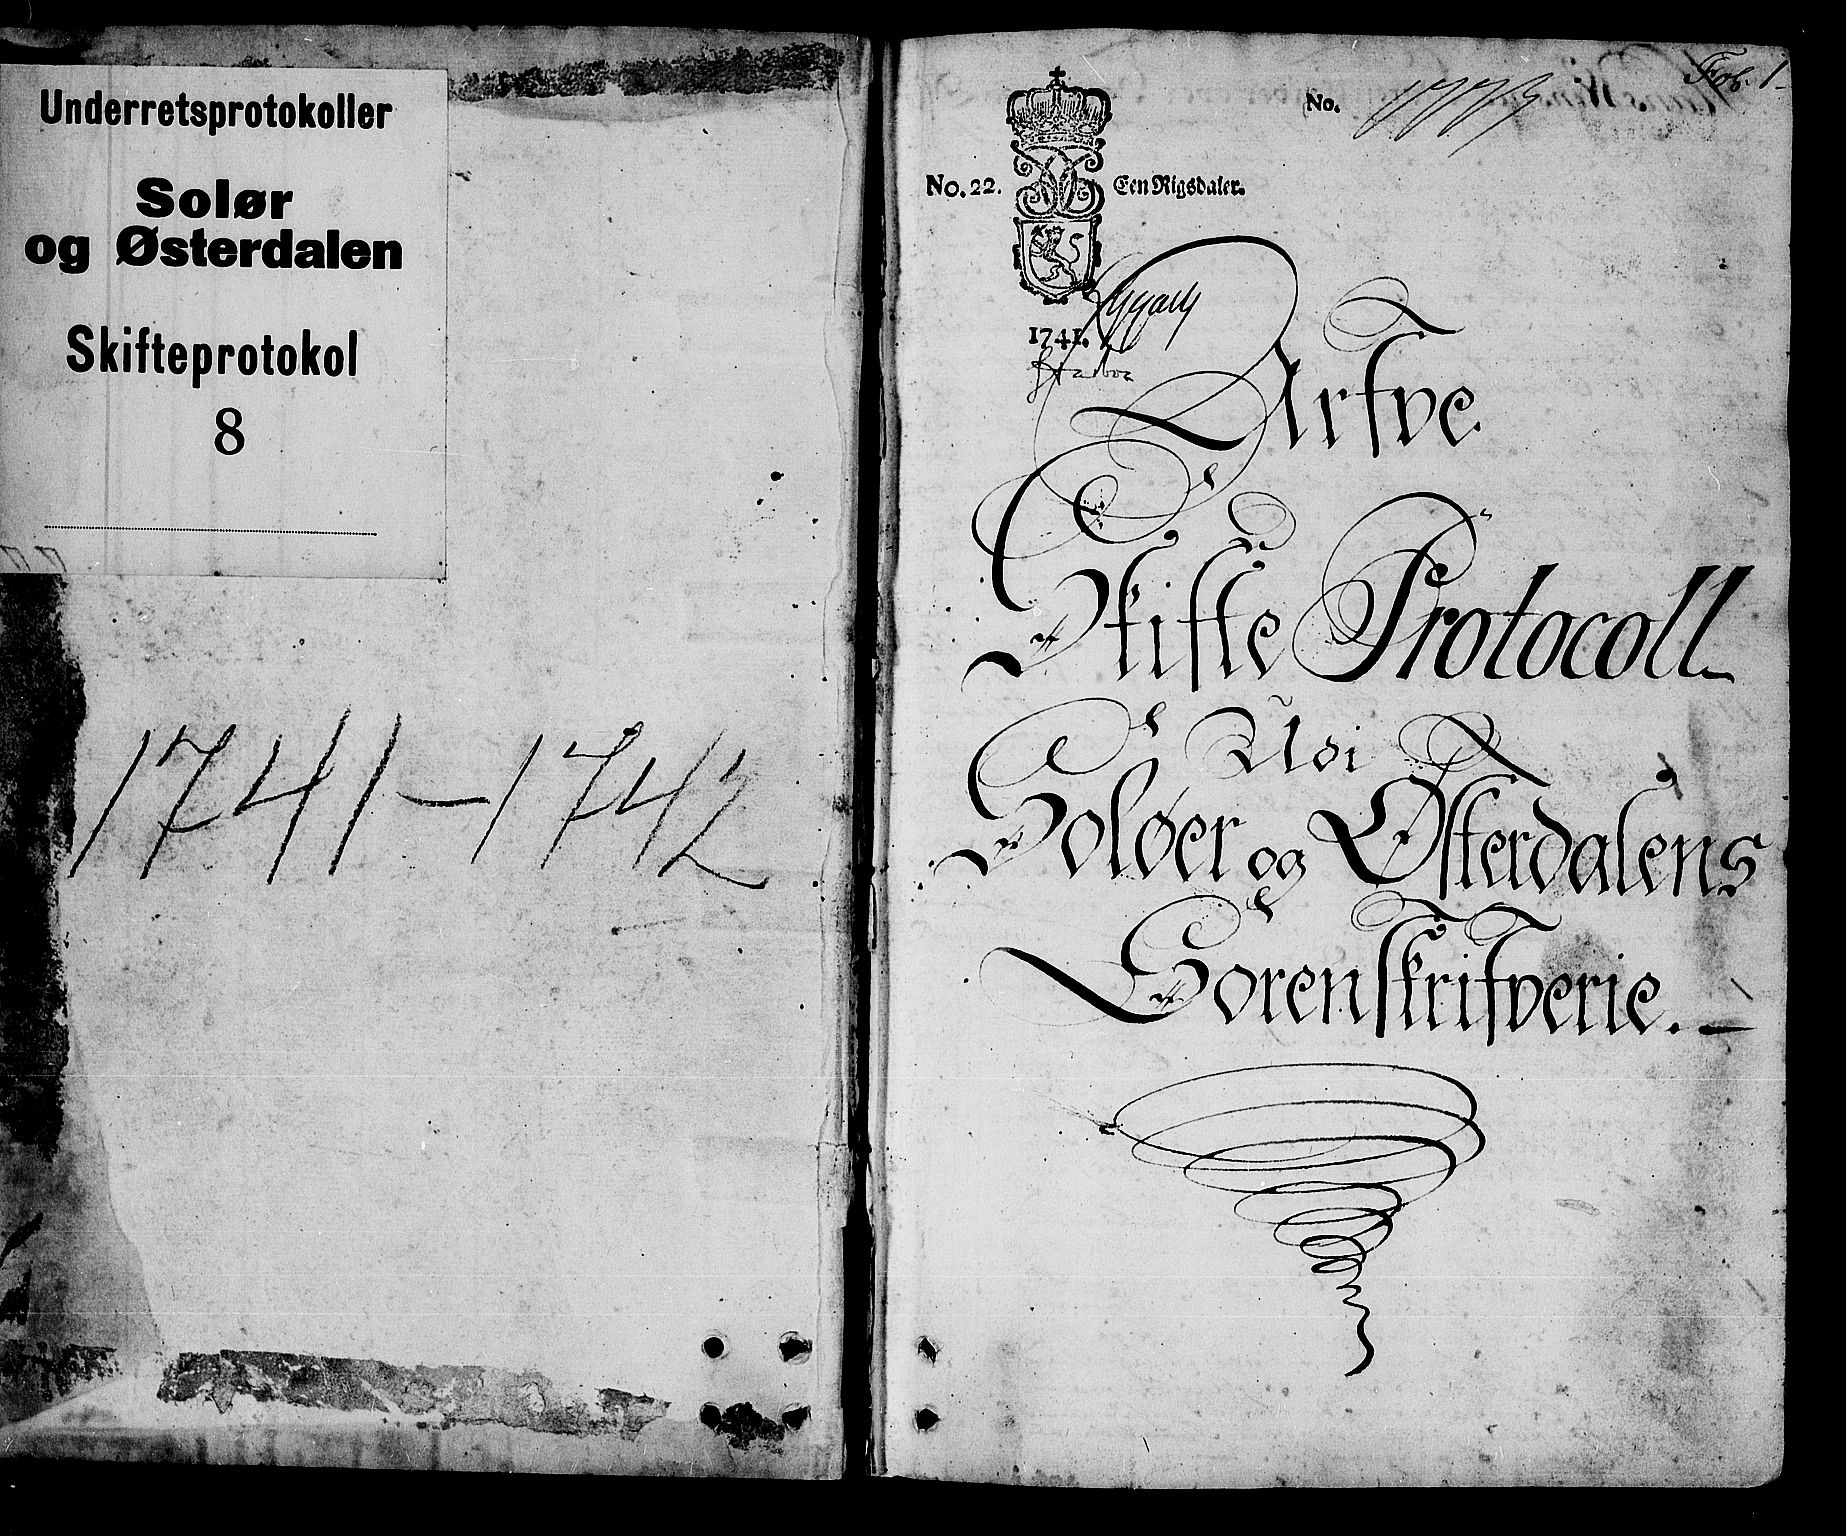 Underretsprotokoller
Solør
og Østerdalen
Skifteprotokol
8
1741-1742
Fol. 1
No.
No. 22.
Een Rigsdaler.
1741.
Arfve
Skifte Protocoll
Udi
Soløer og Østerdalens
Sorenskrifverie.